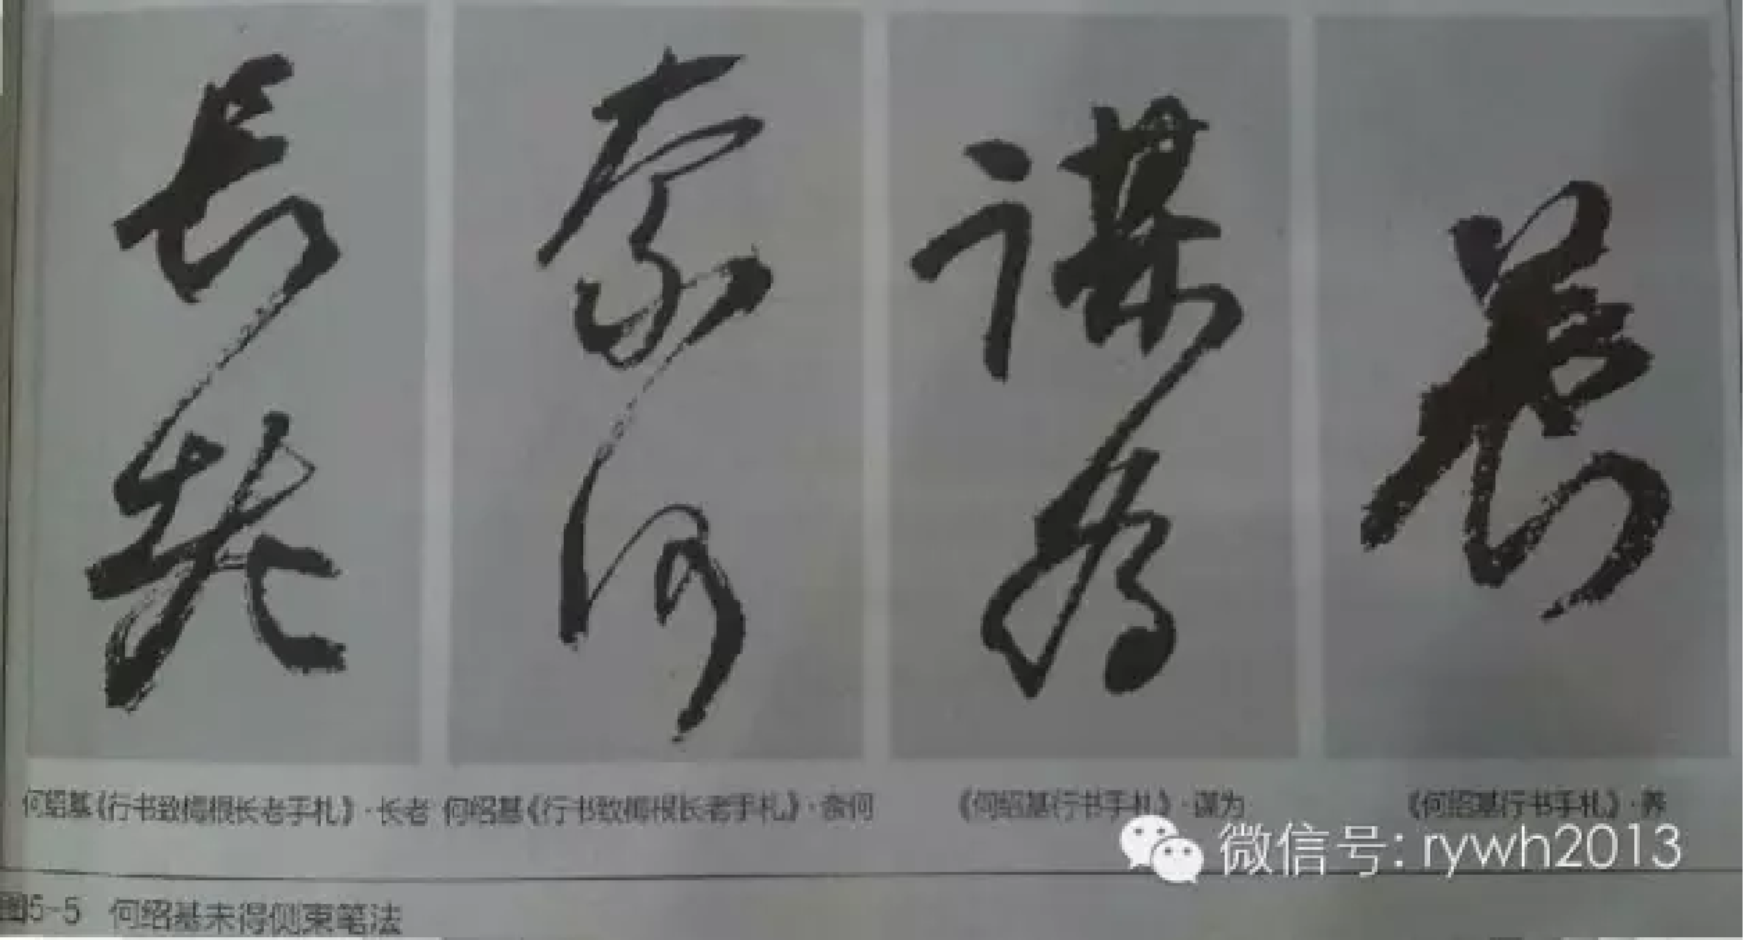 長老
奈何
謀為
養
何绍基《行书致梅根长老手札》·长老
何绍基《行书致梅根长老手札》·奈何
《何绍基行书手札》·谋为
《何绍基行书手札》·养
微信号: rywh2013
图5-5 何绍基未得侧束笔法